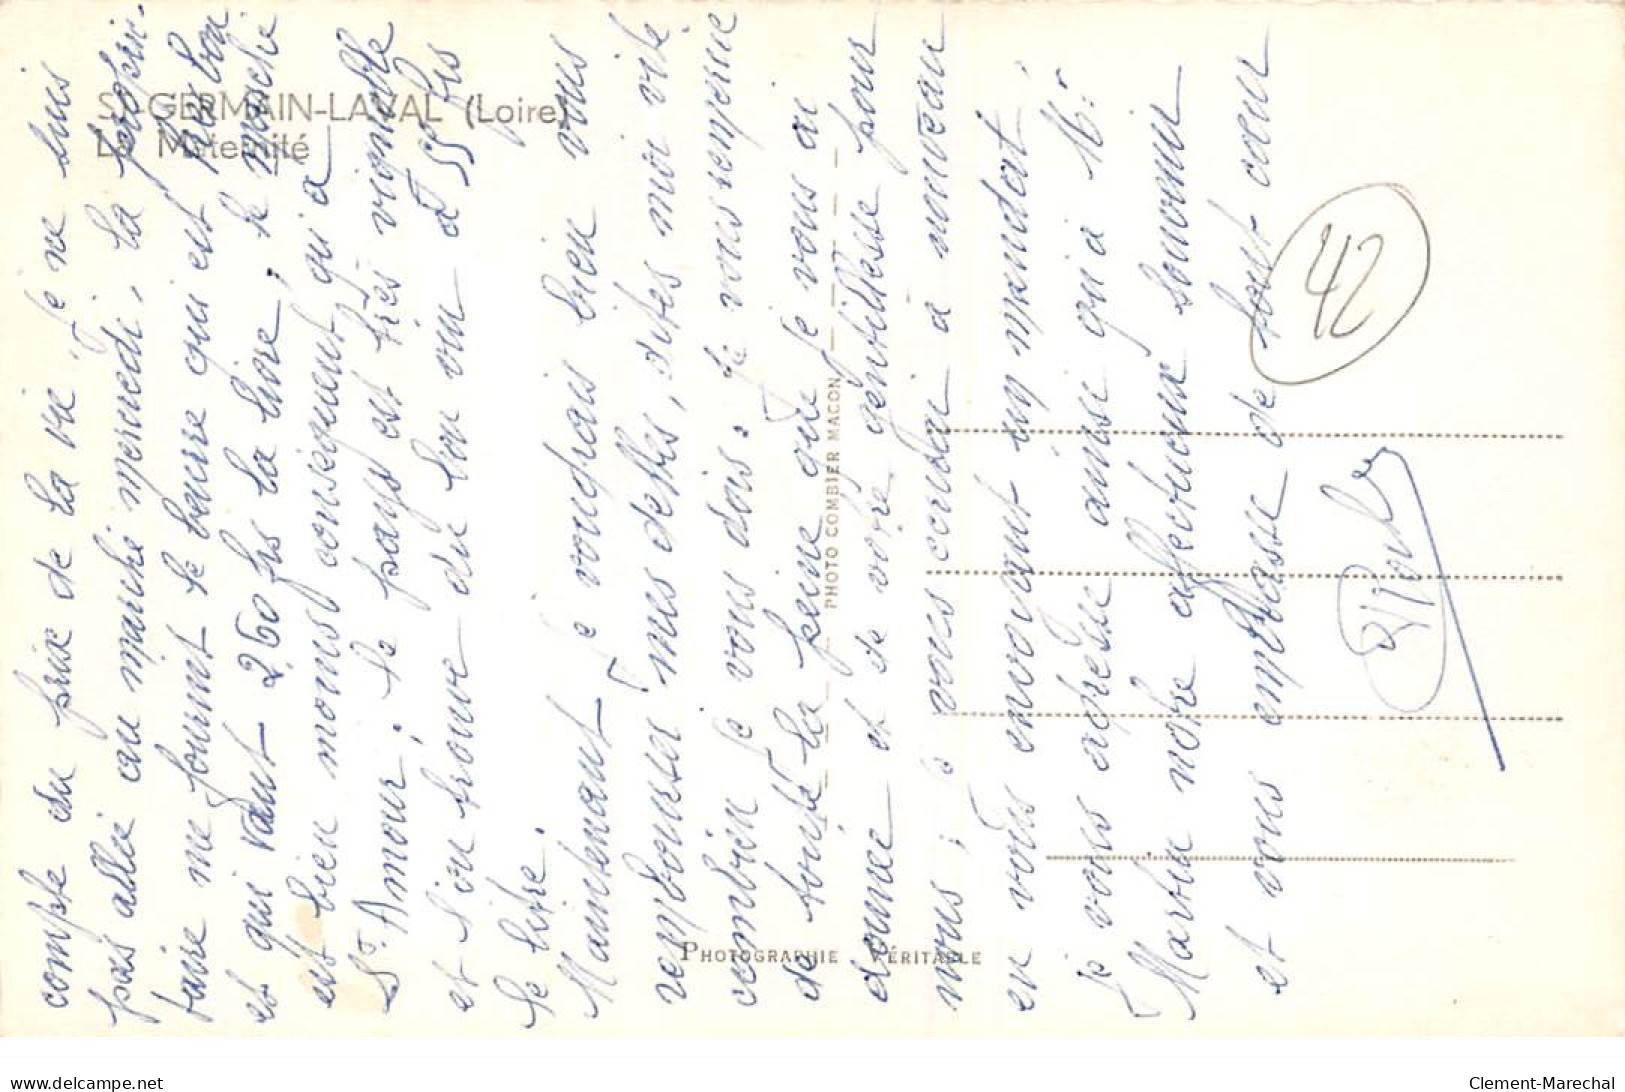 ST-GERMAIN-LAVAL (Loire)
La Maternité
compte du prix de la vie. Je ne suis
pas allée au marché mercredi, la proprié-
taire me fournit le beurre qui est très bon
et qui vaut 260 frs la livre; le marché
est bien moins conséquent qu'à
St. Amour; le pays est très vignoble
et l'on trouve du bon vin à 55 frs
le litre.
Maintenant je voudrais bien vous
rembourser mes dettes, dites moi vite
combien je vous dois. Je vous remercie
de toute la peine que je vous ai
donnée et de votre gentillesse pour
nous; je vous écrirai à nouveau
en vous envoyant un mandat.
Je vous adresse ainsi qu'à Mr.
Martin notre affectueux souvenir
et vous embrasse de tout cœur
42
PHOTO COMBIER MACON
PHOTOGRAPHIE VÉRITABLE
delcampe.net
Clement-Marechal